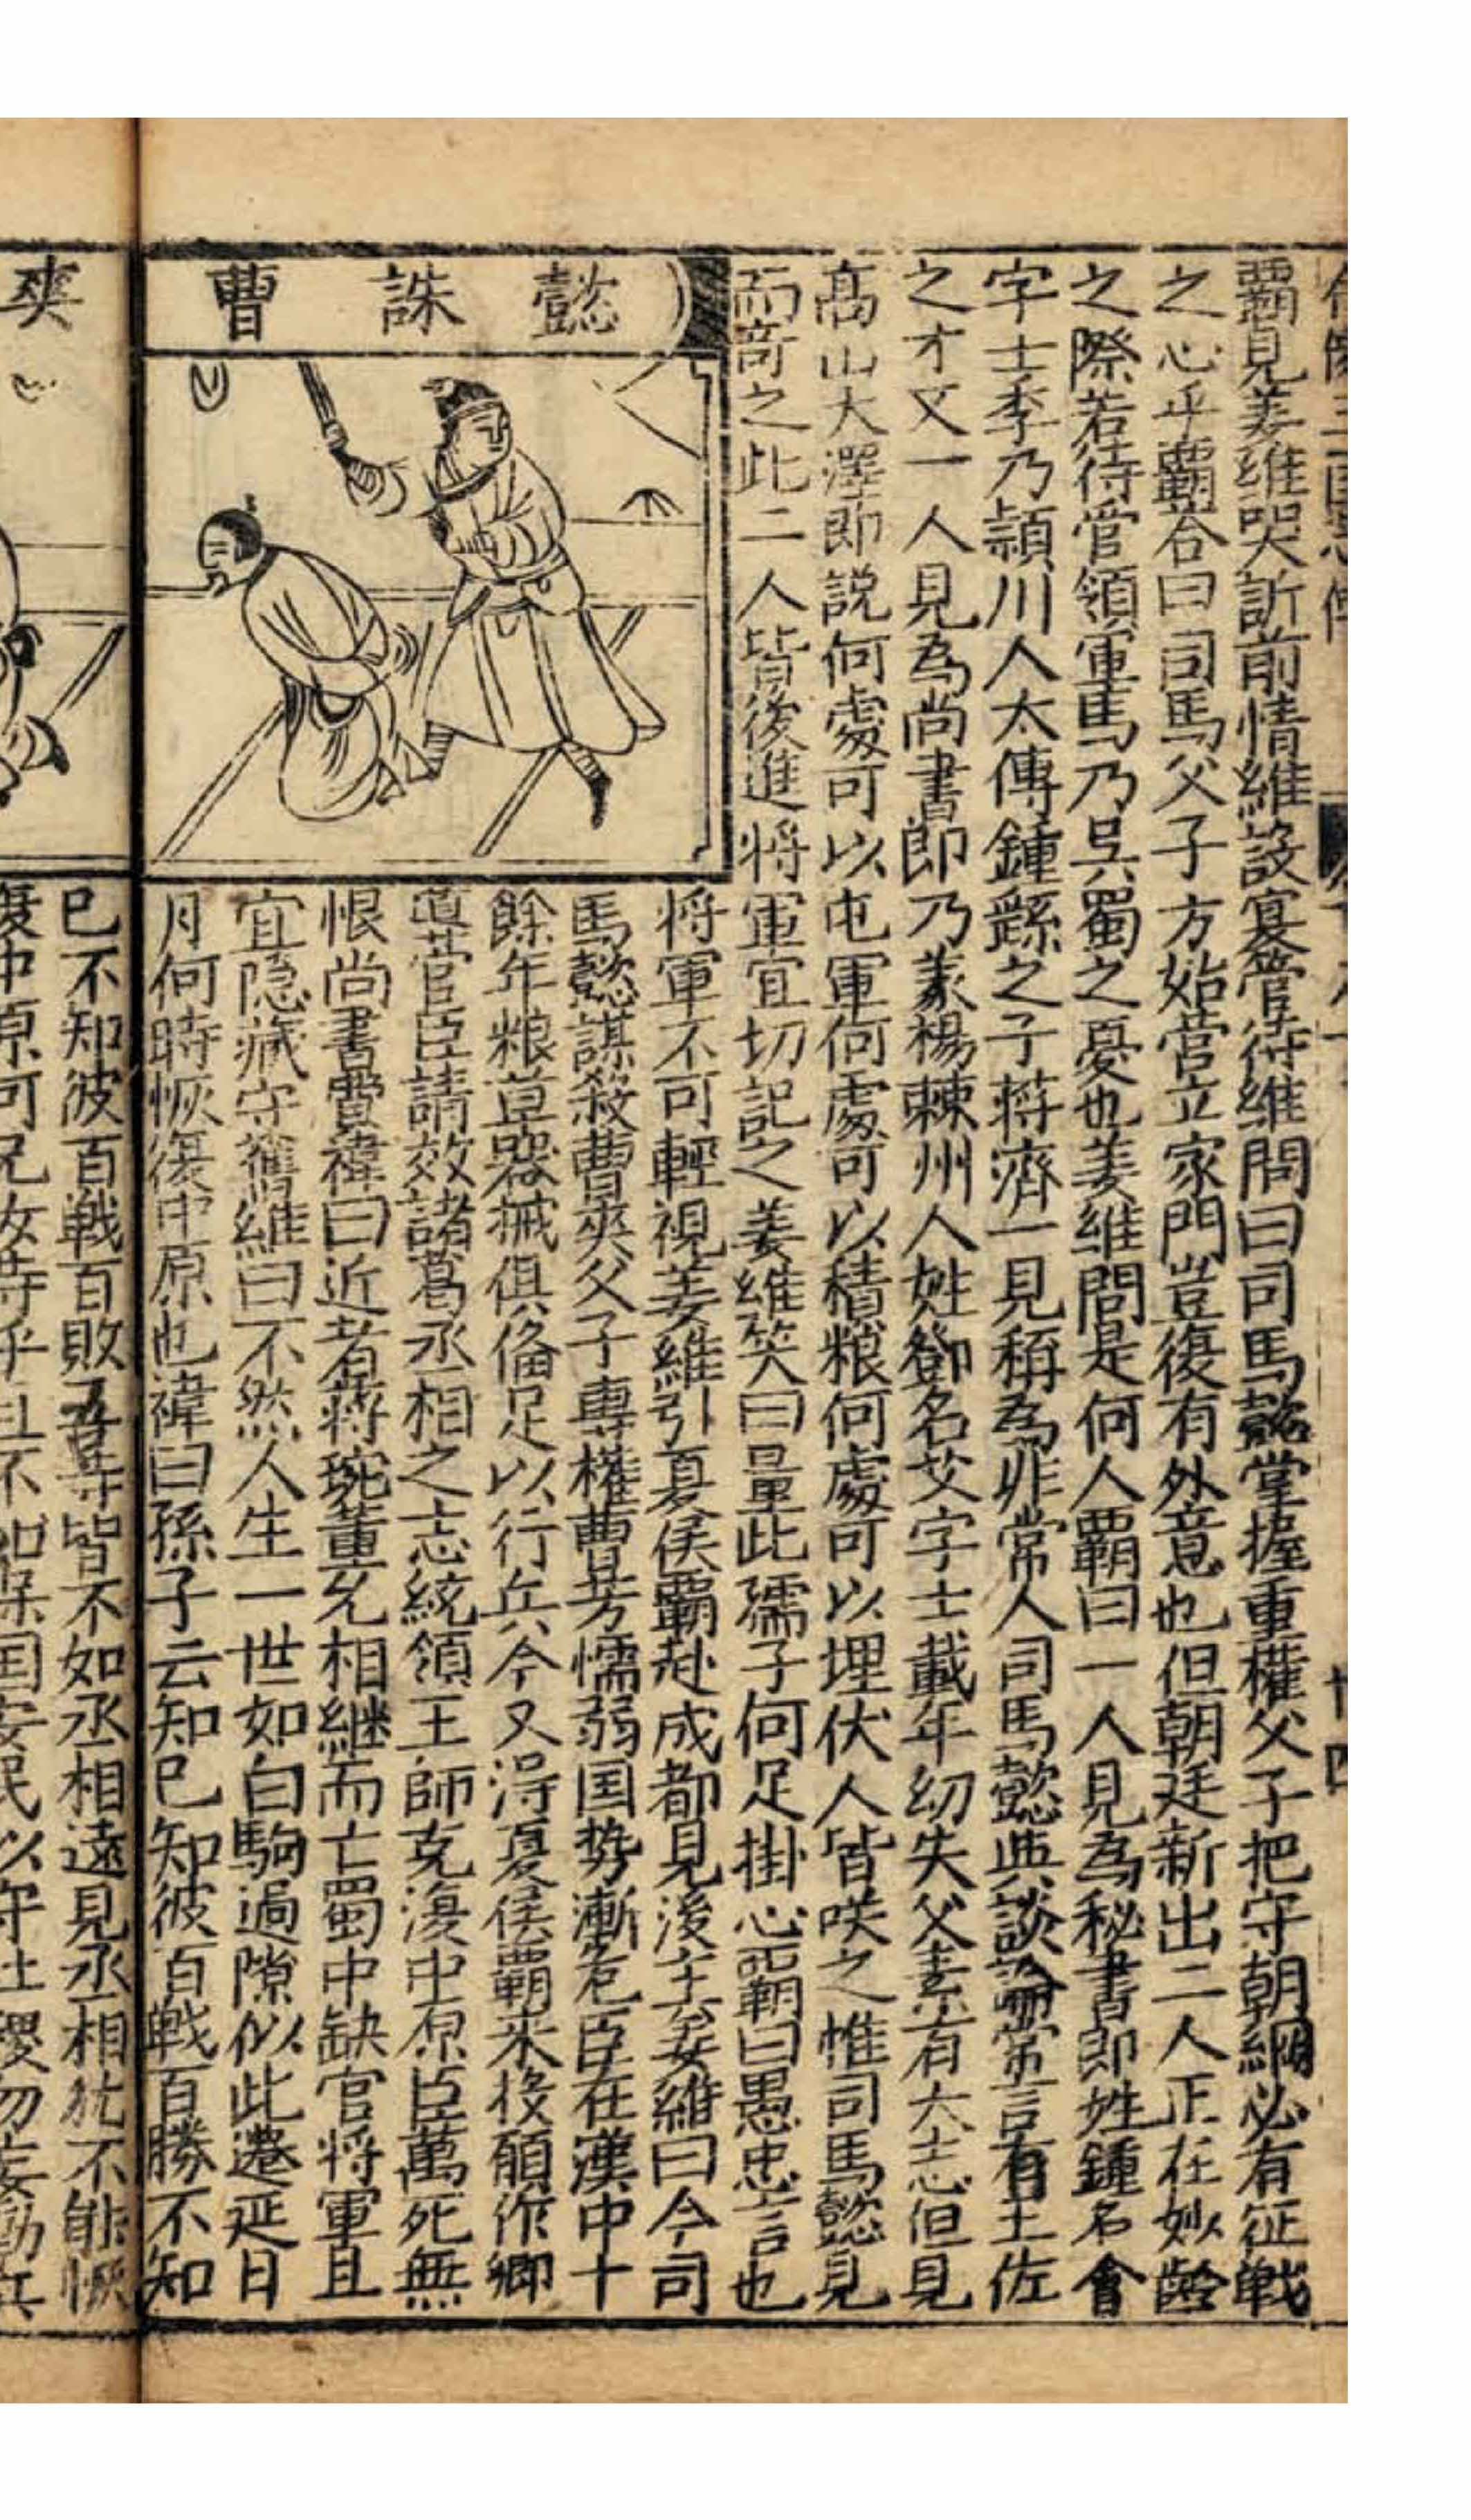 霸見姜維哭訴前情維設宴管待維問曰司馬懿掌握重權父子把守朝綱必有征戰
之心乎霸答曰司馬父子方始營立家門豈復有外意也但朝廷新出二人正在妙齡
之際若侍管領軍馬乃吳蜀之憂也姜維問是何人霸曰一人見為秘書郎姓鍾名會
字士季乃頴川人太傅鍾繇之子蔣濟一見稱為非常人司馬懿與談論常言有王佐
之才又一人見為尚書郎乃義楊棘州人姓鄧名艾字士載年幼失父素有大志但見
高山大澤即説何處可以屯軍何處可以積粮何處可以埋伏人皆咲之惟司馬懿見
而奇之此二人皆後進将軍宜切記之姜維笑曰量此孺子何足掛心霸曰愚忠言也
懿誅曹
将軍不可輕視姜維引夏侯霸赴成都見後主姜維曰今司
馬懿謀殺曹爽父子專權曹芳懦弱国势漸危臣在漢中十
餘年粮草器械俱俻足以行兵今又淂夏侯霸来投願作鄉
道官臣請效諸葛丞相之志統領王師克復中原臣萬死無
恨尚書費禕曰近者蔣琬董允相継而亡蜀中缺官将軍且
宜隐藏守舊維曰不然人生一世如白駒過隙似此遷延日
月何時恢復中原也禕曰孫子云知已知彼百戰百勝不知
已不知彼百戦百敗吾等皆不如丞相遠見丞相犹不能恢
爽
復中原何况汝等乎且不如保国安民以守社稷勿妄動兵